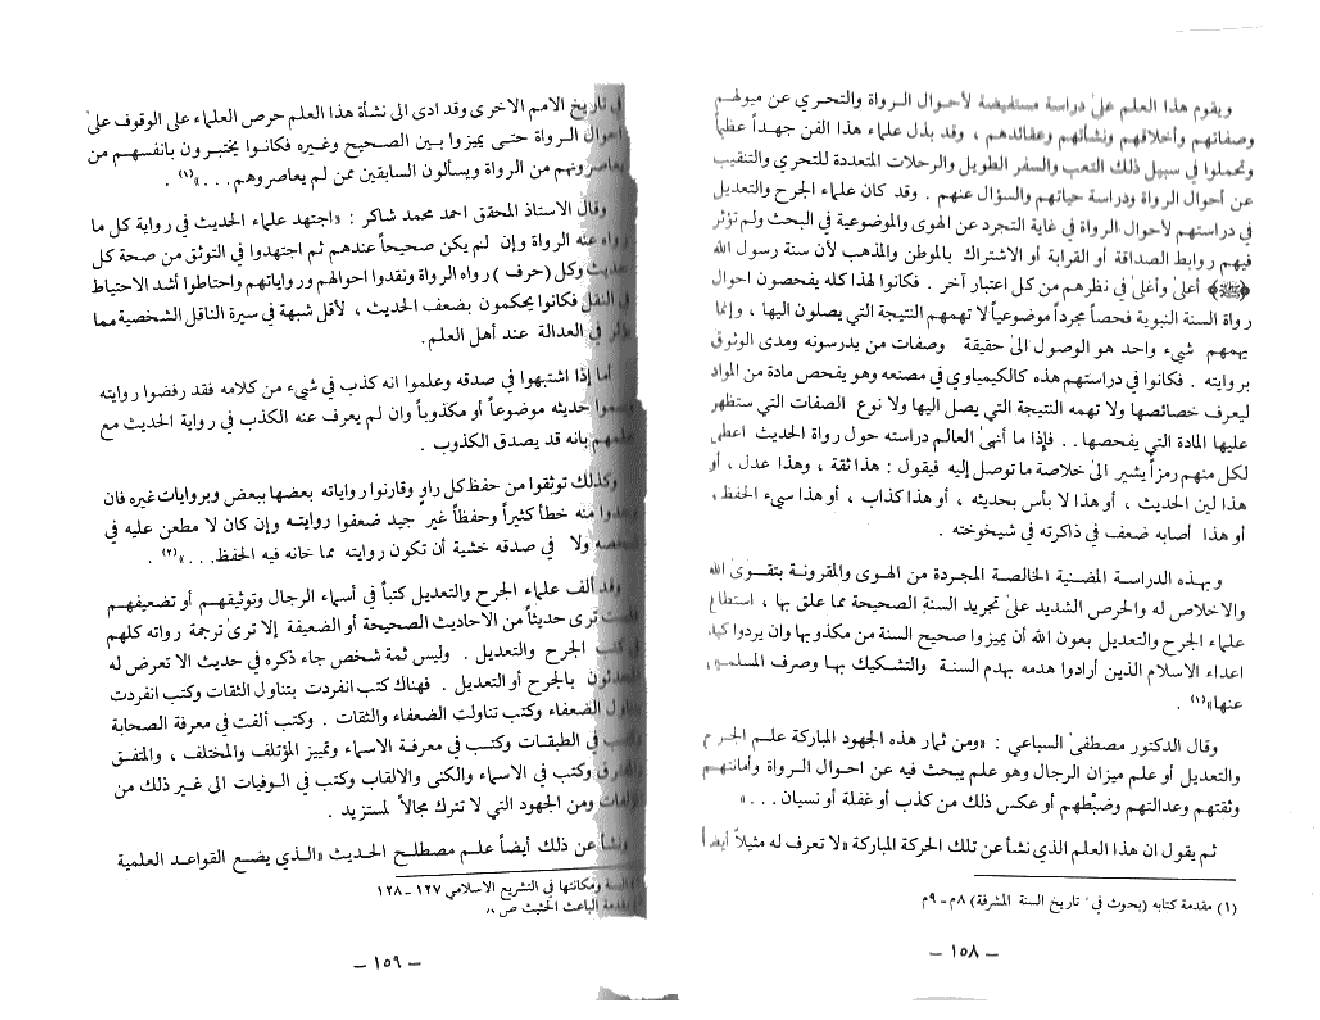 ويقوم هذا العلم على دراسة مستفيضة لأحوال الرواة والتحري عن ميولهم
وصفاتهم وأخلاقهم ونشأتهم وعقائدهم ، وقد بذل علماء هذا الفن جهداً عظيماً
وتحملوا في سبيل ذلك التعب والسفر الطويل والرحلات المتعددة للتحري والتنقيب
عن أحوال الرواة ودراسة حياتهم والسؤال عنهم . وقد كان علماء الجرح والتعديل
في دراستهم لأحوال الرواة في غاية التجرد عن الهوى والموضوعية في البحث ولم تؤثر
فيهم روابط الصداقة أو القرابة أو الاشتراك بالموطن والمذهب لأن سنة رسول الله
﴿ﷺ﴾ أعلىٰ وأغلىٰ في نظرهم من كل اعتبار آخر . فكانوا لهذا كله يفحصون احوال
رواة السنة النبوية فحصاً مجرداً موضوعياً لا تهمهم النتيجة التي يصلون اليها ، وإنما
يهمهم شيء واحد هو الوصول الىٰ حقيقة وصفات من يدرسونه ومدى الوثوق
بروايته . فكانوا في دراستهم هذه كالكيمياوي في مصنعه وهو يفحص مادة من المواد
ليعرف خصائصها ولا تهمه النتيجة التي يصل اليها ولا نوع الصفات التي ستظهر
عليها المادة التي يفحصها . . فإذا ما أنهىٰ العالم دراسته حول رواة الحديث اعطى
لكل منهم رمزاً يشير الىٰ خلاصة ما توصل إليه فيقول : هذا ثقة ، وهذا عدل ، أو
هذا لين الحديث ، أو هذا لا بأس بحديثه ، أو هذا كذاب ، أو هذا سيء الحفظ ،
أو هذا أصابه ضعف في ذاكرته في شيخوخته .
وبهذه الدراسة المضنية الخالصة المجردة من الهوى والمقرونة بتقوىٰ الله
والاخلاص له والحرص الشديد علىٰ تجريد السنة الصحيحة مما علق بها ، استطاع
علماء الجرح والتعديل بعون الله أن يميزوا صحيح السنة من مكذوبها وان يردوا كيد
اعداء الاسلام الذين أرادوا هدمه بهدم السنة والتشكيك بها وصرف المسلمين
عنها»(١) .
وقال الدكتور مصطفىٰ السباعي : «ومن ثمار هذه الجهود المباركة علم الجرح
والتعديل أو علم ميزان الرجال وهو علم يبحث فيه عن احوال الرواة وأمانتهم
وثقتهم وعدالتهم وضبطهم أو عكس ذلك من كذب أو غفلة أو نسيان . . .»
ثم يقول ان هذا العلم الذي نشأ عن تلك الحركة المباركة «لا تعرف له مثيلاً أيضاً
(١) مقدمة كتابه (بحوث في تاريخ السنة المشرفة) ٨م - ٩م
— ١٥٨ —
في تاريخ الامم الاخرى وقد ادى الى نشأة هذا العلم حرص العلماء على الوقوف علىٰ
احوال الرواة حتىٰ يميزوا بين الصحيح وغيره فكانوا يختبرون بانفسهم من
يعاصرونهم من الرواة ويسألون السابقين ممن لم يعاصروهم . . .»(١) .
وقال الاستاذ المحقق احمد محمد شاكر : «اجتهد علماء الحديث في رواية كل ما
رواه عنه الرواة وإن لم يكن صحيحاً عندهم ثم اجتهدوا في التوثق من صحة كل
حديث وكل (حرف) رواه الرواة ونقدوا احوالهم ورواياتهم واحتاطوا أشد الاحتياط
في النقل فكانوا يحكمون بضعف الحديث ، لأقل شبهة في سيرة الناقل الشخصية مما
يؤثر في العدالة عند أهل العلم .
أما إذا اشتبهوا في صدقه وعلموا انه كذب في شيء من كلامه فقد رفضوا روايته
حديثه موضوعاً أو مكذوباً وان لم يعرف عنه الكذب في رواية الحديث مع
علمهم بانه قد يصدق الكذوب .
وكذلك توثقوا من حفظ كل راوٍ وقارنوا رواياته بعضها ببعض وبروايات غيره فان
منه خطأ كثيراً وحفظاً غير جيد ضعفوا روايته وإن كان لا مطعن عليه في
شخصه ولا في صدقه خشية أن تكون روايته مما خانه فيه الحفظ . . .»(٢) .
وقد ألف علماء الجرح والتعديل كتباً في أسماء الرجال وتوثيقهم أو تضعيفهم
فلست ترى حديثاً من الاحاديث الصحيحة أو الضعيفة إلا ترىٰ ترجمة رواته كلهم
في كتب الجرح والتعديل . وليس ثمة شخص جاء ذكره في حديث الا تعرض له
المحدثون بالجرح أو التعديل . فهناك كتب انفردت بتناول الثقات وكتب انفردت
بتناول الضعفاء وكتب تناولت الضعفاء والثقات . وكتب ألفت في معرفة الصحابة
وكتب في الطبقات وكتب في معرفة الاسماء وتمييز المؤتلف والمختلف ، والمتفق
والمفترق وكتب في الاسماء والكنى والالقاب وكتب في الوفيات الى غير ذلك من
المؤلفات ومن الجهود التي لا تترك مجالاً لمستزيد .
ونشأ عن ذلك أيضاً علم مصطلح الحديث «الذي يضع القواعد العلمية
السنة ومكانتها في التشريع الاسلامي ١٢٧ - ١٢٨
مقدمة الباعث الحثيث ص
— ١٥٩ —